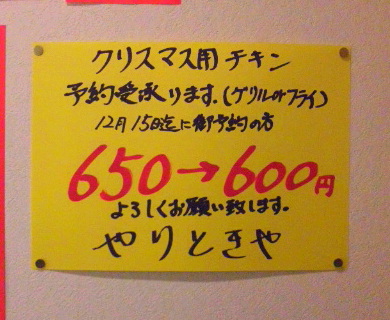 クリスマス用チキン
予約受承ります。(グリルorフライ)
12月15日迄に御予約の方
650→600円
よろしくお願い致します。
やりときや